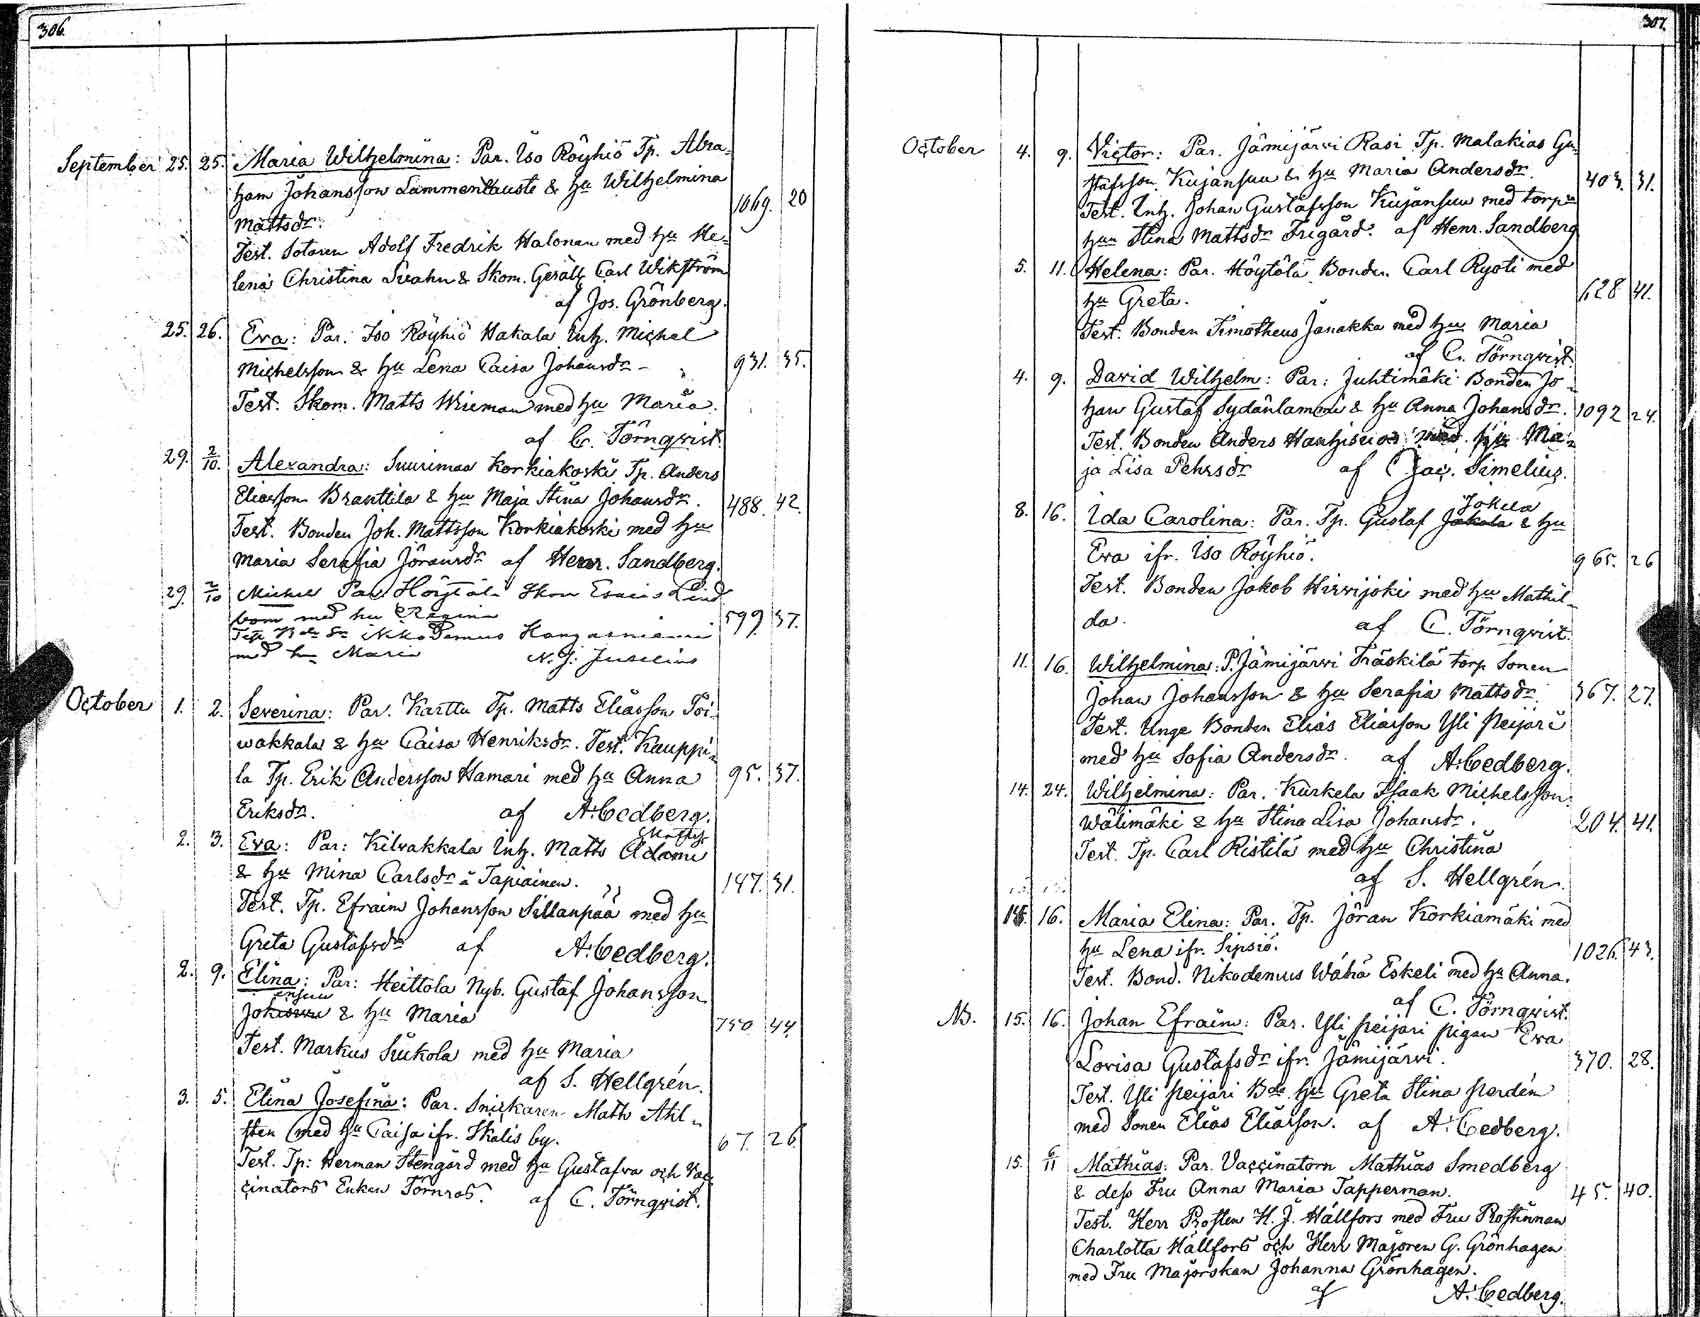 306.
September 25. 25. Maria Wilhelmina: Par. Iso Röyhiö Tp. Abra-
ham Johansson Lammentausta & hu Wilhelmina
Mattsdr. 1069. 20
Test. Sotaren Adolf Fredrik Halonen med hu He-
lena Christina Svahn & Skom. Gesäll Carl Wikström
af Jos. Grönberg.
25. 26. Eva: Par. Iso Röyhiö Hakala Inh. Michel
Michelsson & hu Lena Caisa Johansdr 931. 35.
Test. Skom. Matts Wrieman med hu Maria.
af C. Törnqvist.
29. 2/10. Alexandra: Suurimaa Korkiakoski Tp. Anders
Eliasson Branttila & hu Maja Stina Johansdr. 488. 42.
Test. Bonden Joh. Mattsson Korkiakoski med hu
Maria Serafia Göransdr af Henr. Sandberg.
29. 2/10 Michel Par. Höytölä Skom Esaias Lind
bom med hu Regina 599. 37.
Kangasniemi
med hu Maria N. J. Juselius
October 1. 2. Severina: Par. Karttu Tp. Matts Eliasson Toi-
wakkala & hu Caisa Henriksdr. Test. Kauppi-
la Tp. Erik Andersson Hamari med hu Anna 95. 37.
Eriksdr. af A. Cedberg.
2. 3. Eva: Par: Kilvakkala Inh. Matts Mattss. Adami
& hu Mina Carlsdr å Tapiainen. 147. 31.
Test. Tp. Efraim Johansson Sillanpää med hu
Greta Gustafsdr af A. Cedberg.
2. 9. Elina: Par: Heittola Nyb. Gustaf Johansson
& hu Maria 750 44.
Test. Markus Siukola med hu Maria
af S. Hellgrén.
3. 5. Elina Josefina: Par. Snickaren Matts Ahl-
sten med hu Caisa ifr. Skalis by. 67. 26
Test. Tp: Herman Stengård med hu Gustafva och Vac-
cinators Enkan Törnros. af C. Törnqvist.
307.
October 4. 9. Victor: Par. Jämijärvi Rasi Tp. Malakias Gu-
stafsson Kujansuu & hu Maria Andersdr. 403. 31.
Test. Inh. Johan Gustafsson Kujansuu med torpu
hun Stina Mattsdr Frigård. af Henr. Sandberg
5. 11. Helena: Par. Höytölä Bonden Carl Ryoti med
hu Greta. 628 41.
Test. Bonden Timotheus Janakka med hu Maria
af C. Törnqvist.
4. 9. David Wilhelm: Par: Juhtimäki Bonden Jo-
han Gustaf Sydänlammi & hu Anna Johansdr. 1092 24.
Test. Bonden Anders Hanhisuo med hu Ma-
ja Lisa Pehrsdr af Jac. Simelius.
8. 16. Ida Carolina: Par. Tp. Gustaf Jokela & hu
Eva ifr. Iso Röyhiö. 965. 26
Test. Bonden Jakob Hirvijoki med hu Mathil-
da. af C. Törnqvist.
11. 16. Wilhelmina: P. Jämijärvi Träskilä torp Sonen
Johan Johansson & hu Serafia Mattsdr. 367. 27.
Test. Unge Bonden Elias Eliasson Yli Peijari
med hu Sofia Andersdr. af A. Cedberg.
14. 24. Wilhelmina: Par. Kurkela Isaak Michelsson
Wälimäki & hu Stina Lisa Johansdr. 204. 41.
Test. Tp. Carl Ristilä med hu Christina
af S. Hellgrén.
16. Maria Elina: Par. Tp. Jöran Korkiamäki med
hu Lena ifr. Sipsiö. 1026. 43.
Test. Bond. Nikodemus Wähä Eskeli med hu Anna.
af C. Törnqvist.
NB. 15. 16. Johan Efraim: Par. Yli Peijari pigan Eva
Lovisa Gustafsdr ifr. Jämijärvi. 370. 28.
Test. Yli Peijari Bde hu Greta Stina Perdén
med Sonen Elias Eliasson. af A. Cedberg.
15. 6/11 Mathias: Par. Vaccinatorn Mathias Smedberg
& dess Fru Anna Maria Tapperman. 45. 40.
Test. Herr Prosten H. J. Hällfors med Fru Prostinnan
Charlotta Hällfors och Herr Majoren G. Grönhagen
med Fru Majorskan Johanna Grönhagen.
af A. Cedberg.